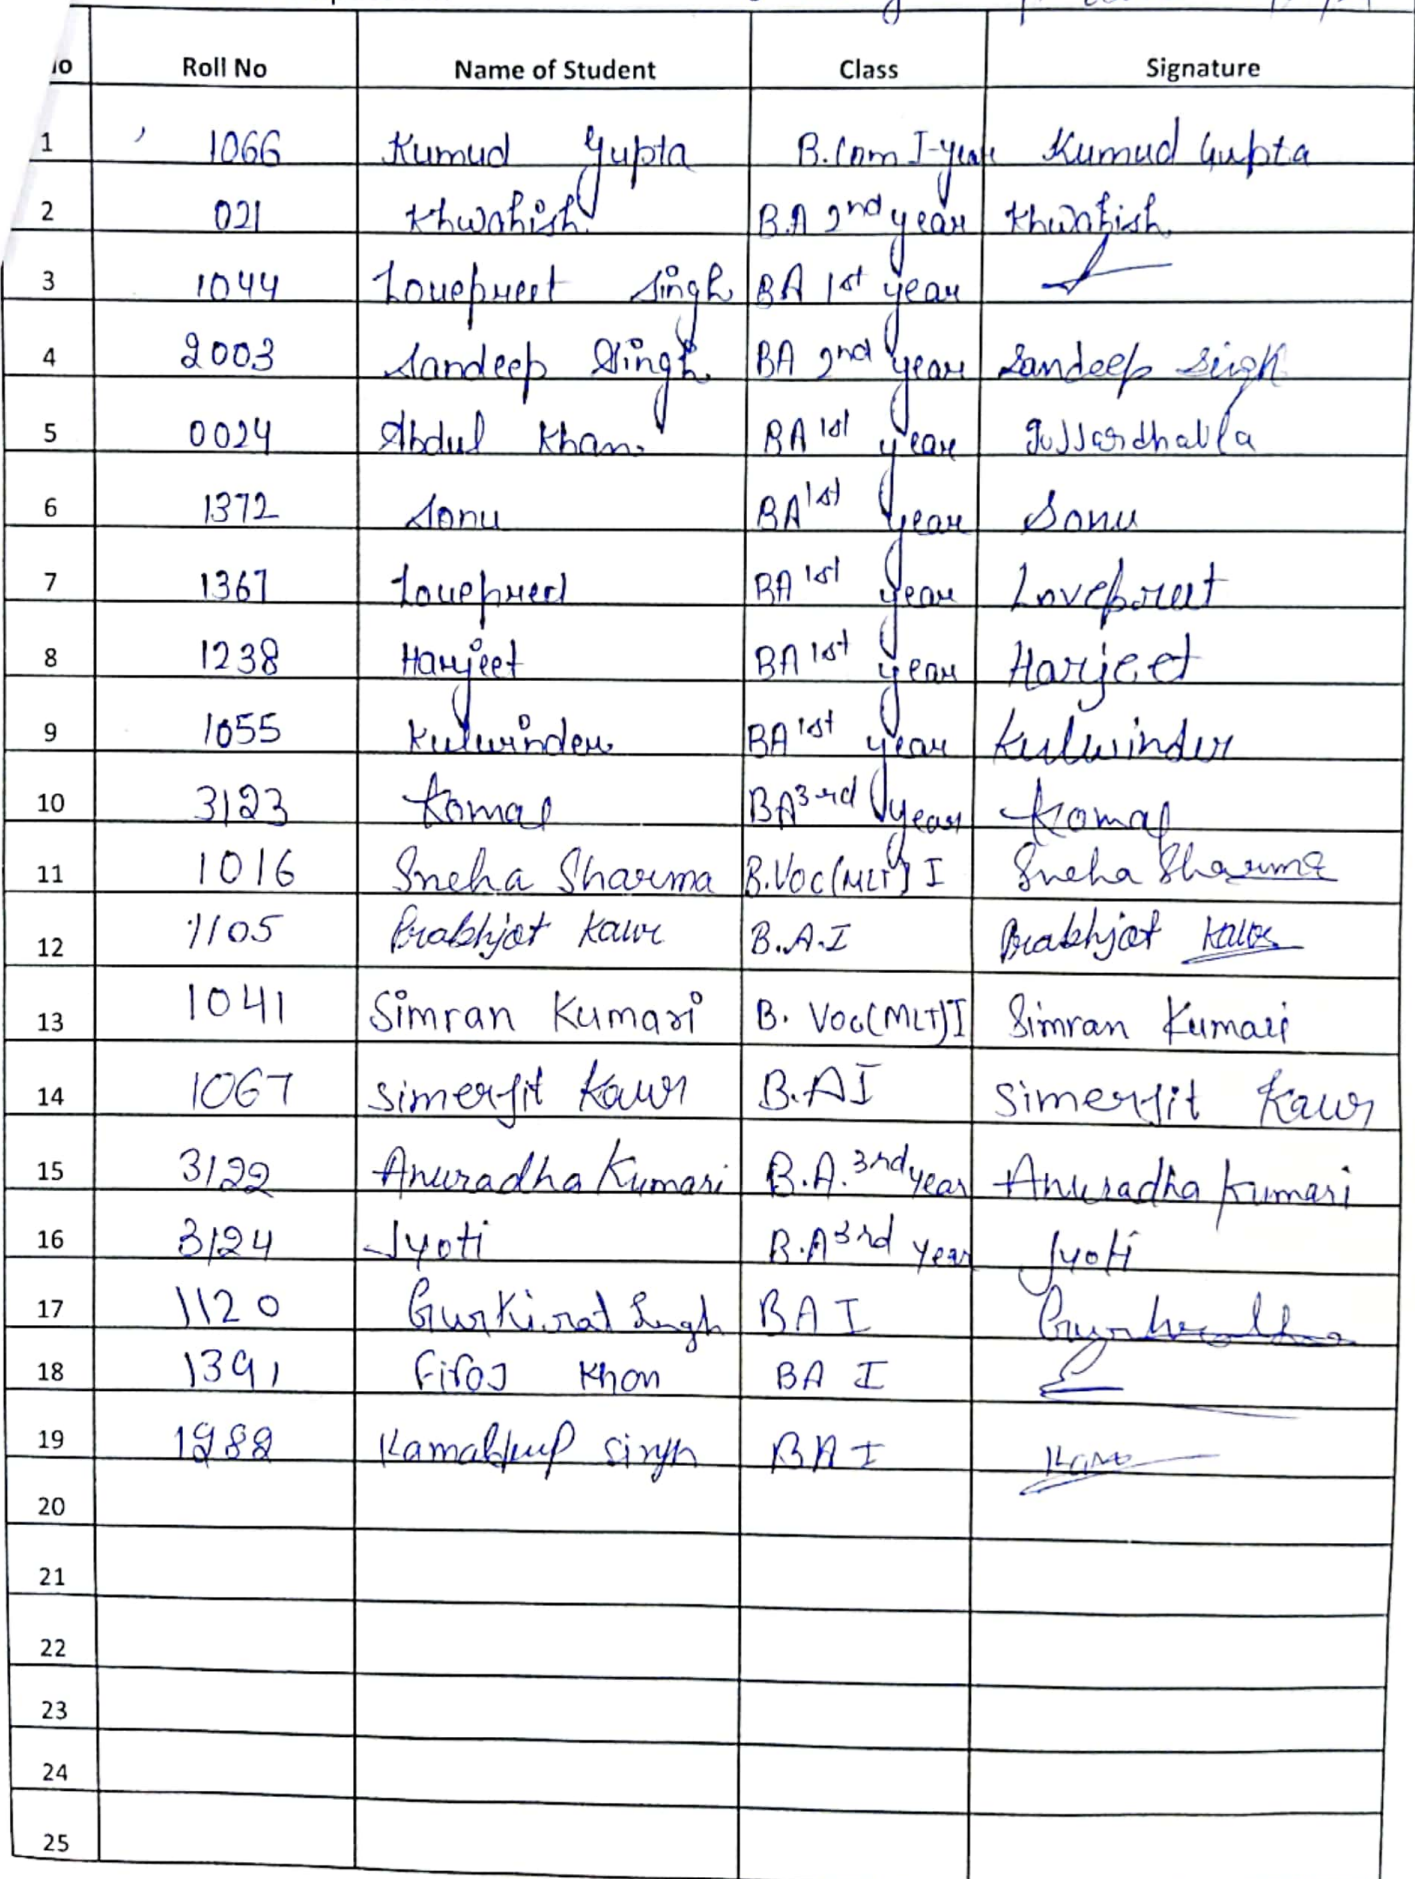 Roll No Name of Student Class Signature
1 1066 Kumud Gupta B.Com I-year Kumud Gupta
2 021 Khwahish B.A 2nd year Khwahish
3 1044 Lovepreet Singh BA 1st year
4 2003 Sandeep Singh BA 2nd year Sandeep Singh
5 0024 Abdul Khan. BA 1st year
6 1372 Sonu BA 1st year Sonu
7 1367 Lovepreet BA 1st year Lovepreet
8 1238 Harjeet BA 1st year Harjeet
9 1055 Kulwinder BA 1st year Kulwinder
10 3123 Komal BA 3rd year Komal
11 1016 Sneha Sharma B.Voc(MLT) I Sneha Sharma
12 1105 Prabhjot Kaur B.A.I Prabhjot Kaur
13 1041 Simran Kumari B. Voc(MLT)I Simran Kumari
14 1067 Simerjit Kaur B.AI Simerjit Kaur
15 3122 Anuradha Kumari B.A. 3rd year Anuradha Kumari
16 3124 Jyoti B.A 3rd year Jyoti
17 1120 Gurkirat Singh BA I
18 1391 Firoj Khan BA I
19 Singh BA I
20
21
22
23
24
25